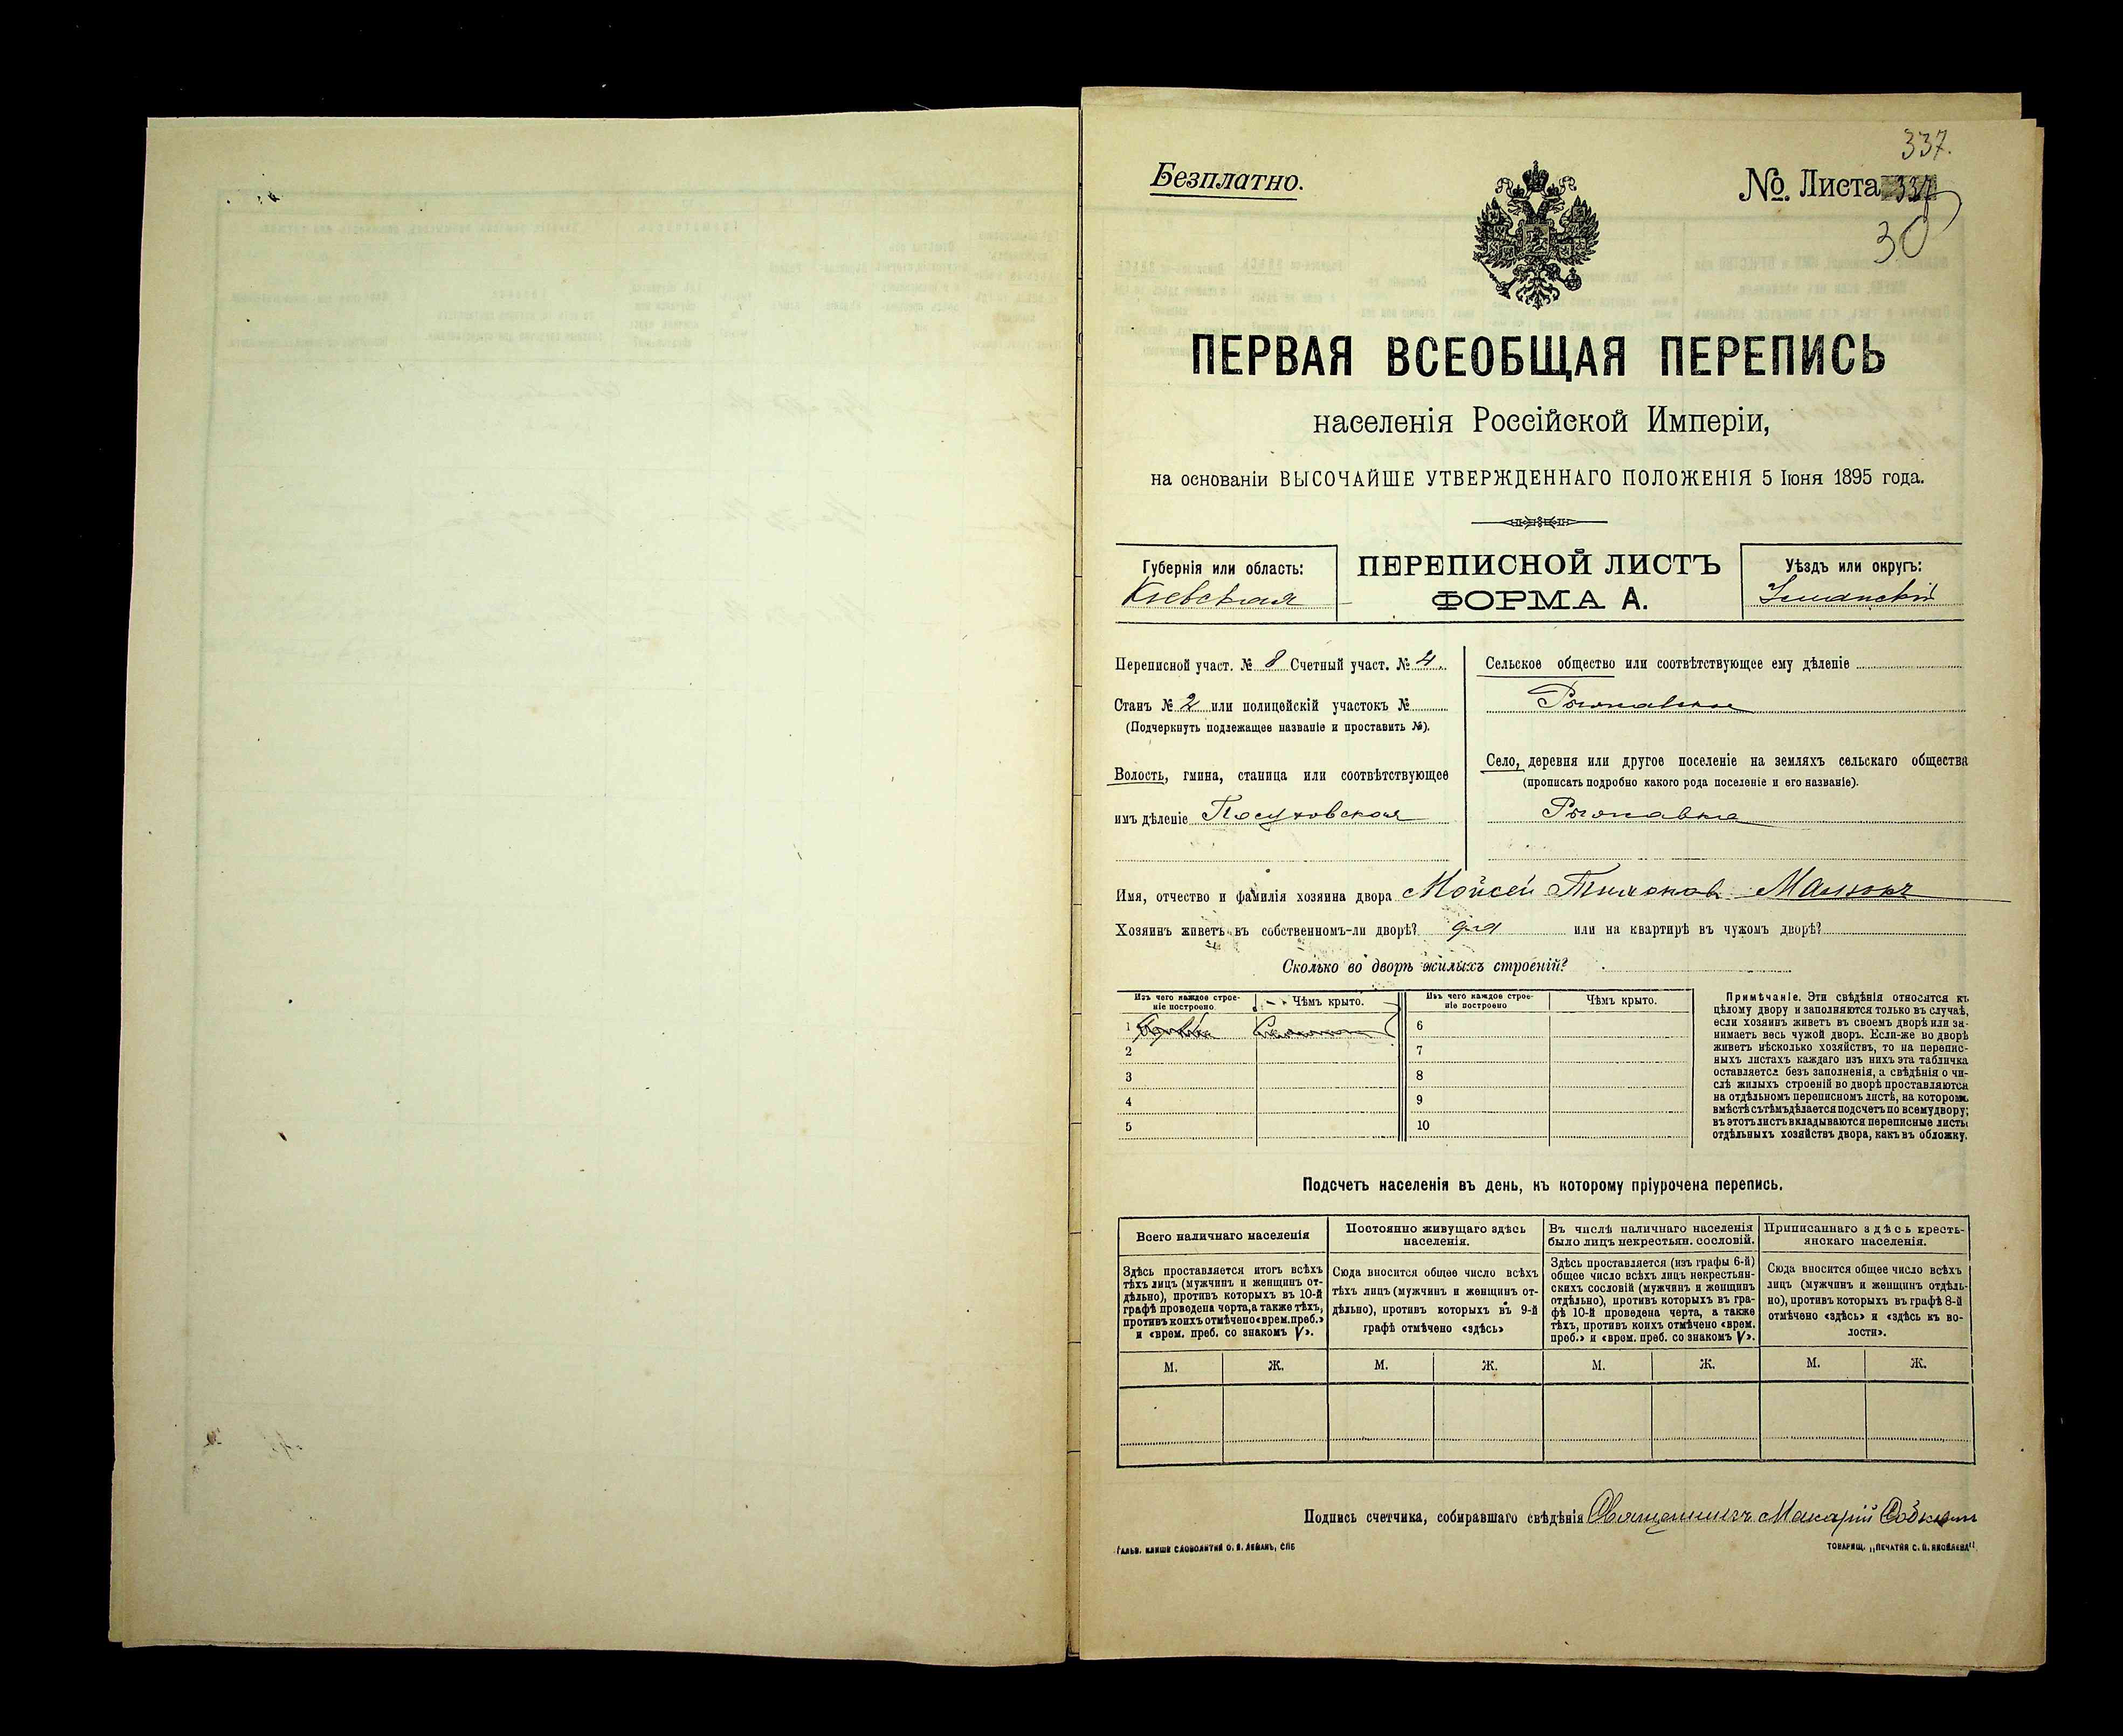 337.
Безплатно.
№ Листа 337
30
ПЕРВАЯ ВСЕОБЩАЯ ПЕРЕПИСЬ
населенія Россійской Имперіи,
на основаніи ВЫСОЧАЙШЕ УТВЕРЖДЕННАГО ПОЛОЖЕНІЯ 5 Іюня 1895 года.
Губернія или область:
Кіевская
ПЕРЕПИСНОЙ ЛИСТЪ
ФОРМА А.
Уѣздъ или округъ:
Уманскій
Переписной участ. № 8 Счетный участ. № 4
Станъ № 2 или полицейскій участокъ №
(Подчеркнуть подлежащее названіе и проставить №).
Волость, гмина, станица или соотвѣтствующее
имъ дѣленіе Посуховская
Сельское общество или соотвѣтствующее ему дѣленіе
Село, деревня или другое поселеніе на земляхъ сельскаго общества
(прописать подробно какого рода поселеніе и его названіе).
Имя, отчество и фамилія хозяина двора Мойсей
Хозяинъ живетъ въ собственномъ-ли дворѣ? да или на квартирѣ въ чужомъ дворѣ?
Сколько во дворѣ жилыхъ строеній?
Изъ чего каждое строе-
ніе построено
Чѣмъ крыто.
Изъ чего каждое строе-
ніе построено
Чѣмъ крыто.
1
2
3
4
5
6
7
8
9
10
Примѣчаніе. Эти свѣдѣнія относятся къ
цѣлому двору и заполняются только въ случаѣ,
если хозяинъ живетъ въ своемъ дворѣ или за-
нимаетъ весь чужой дворъ. Если-же во дворѣ
живетъ нѣсколько хозяйствъ, то на перепис-
ныхъ листахъ каждаго изъ нихъ эта табличка
оставляется безъ заполненія, а свѣдѣнія о чи-
слѣ жилыхъ строеній во дворѣ проставляются
на отдѣльномъ переписномъ листѣ, на которомъ
вмѣстѣ съ тѣмъ дѣлается подсчетъ по всему двору;
въ этотъ листъ вкладываются переписные листы
отдѣльныхъ хозяйствъ двора, какъ въ обложку.
Подсчетъ населенія въ день, къ которому пріурочена перепись.
Всего наличнаго населенія
Здѣсь проставляется итогъ всѣхъ
тѣхъ лицъ (мужчинъ и женщинъ от-
дѣльно), противъ которыхъ въ 10-й
графѣ проведена черта, а также тѣхъ,
противъ коихъ отмѣчено «врем. преб.»
и «врем. преб. со знакомъ V».
Постоянно живущаго здѣсь
населенія.
Сюда вносится общее число всѣхъ
тѣхъ лицъ (мужчинъ и женщинъ от-
дѣльно), противъ которыхъ въ 9-й
графѣ отмѣчено «здѣсь»
Въ числѣ наличнаго населенія
было лицъ некрестьян. сословій.
Здѣсь проставляется (изъ графы 6-й)
общее число всѣхъ лицъ некрестьян-
скихъ сословій (мужчинъ и женщинъ
отдѣльно), противъ которыхъ въ гра-
фѣ 10-й проведена черта, а также
тѣхъ, противъ коихъ отмѣчено «врем.
преб.» и «врем. преб. со знакомъ V».
Приписаннаго здѣсь кресть-
янскаго населенія.
Сюда вносится общее число всѣхъ
лицъ (мужчинъ и женщинъ отдѣль-
но), противъ которыхъ въ графѣ 8-й
отмѣчено «здѣсь» и «здѣсь къ во-
лости».
М. Ж. М. Ж. М. Ж. М. Ж.
Подпись счетчика, собиравшаго свѣдѣнія Священникъ Макарій
ГАЛЬВ. КЛИШЕ СЛОВОЛИТНИ О. И. ЛЕМАНЪ, СПБ
ТОВАРИЩ. „ПЕЧАТНЯ С. П. ЯКОВЛЕВА"